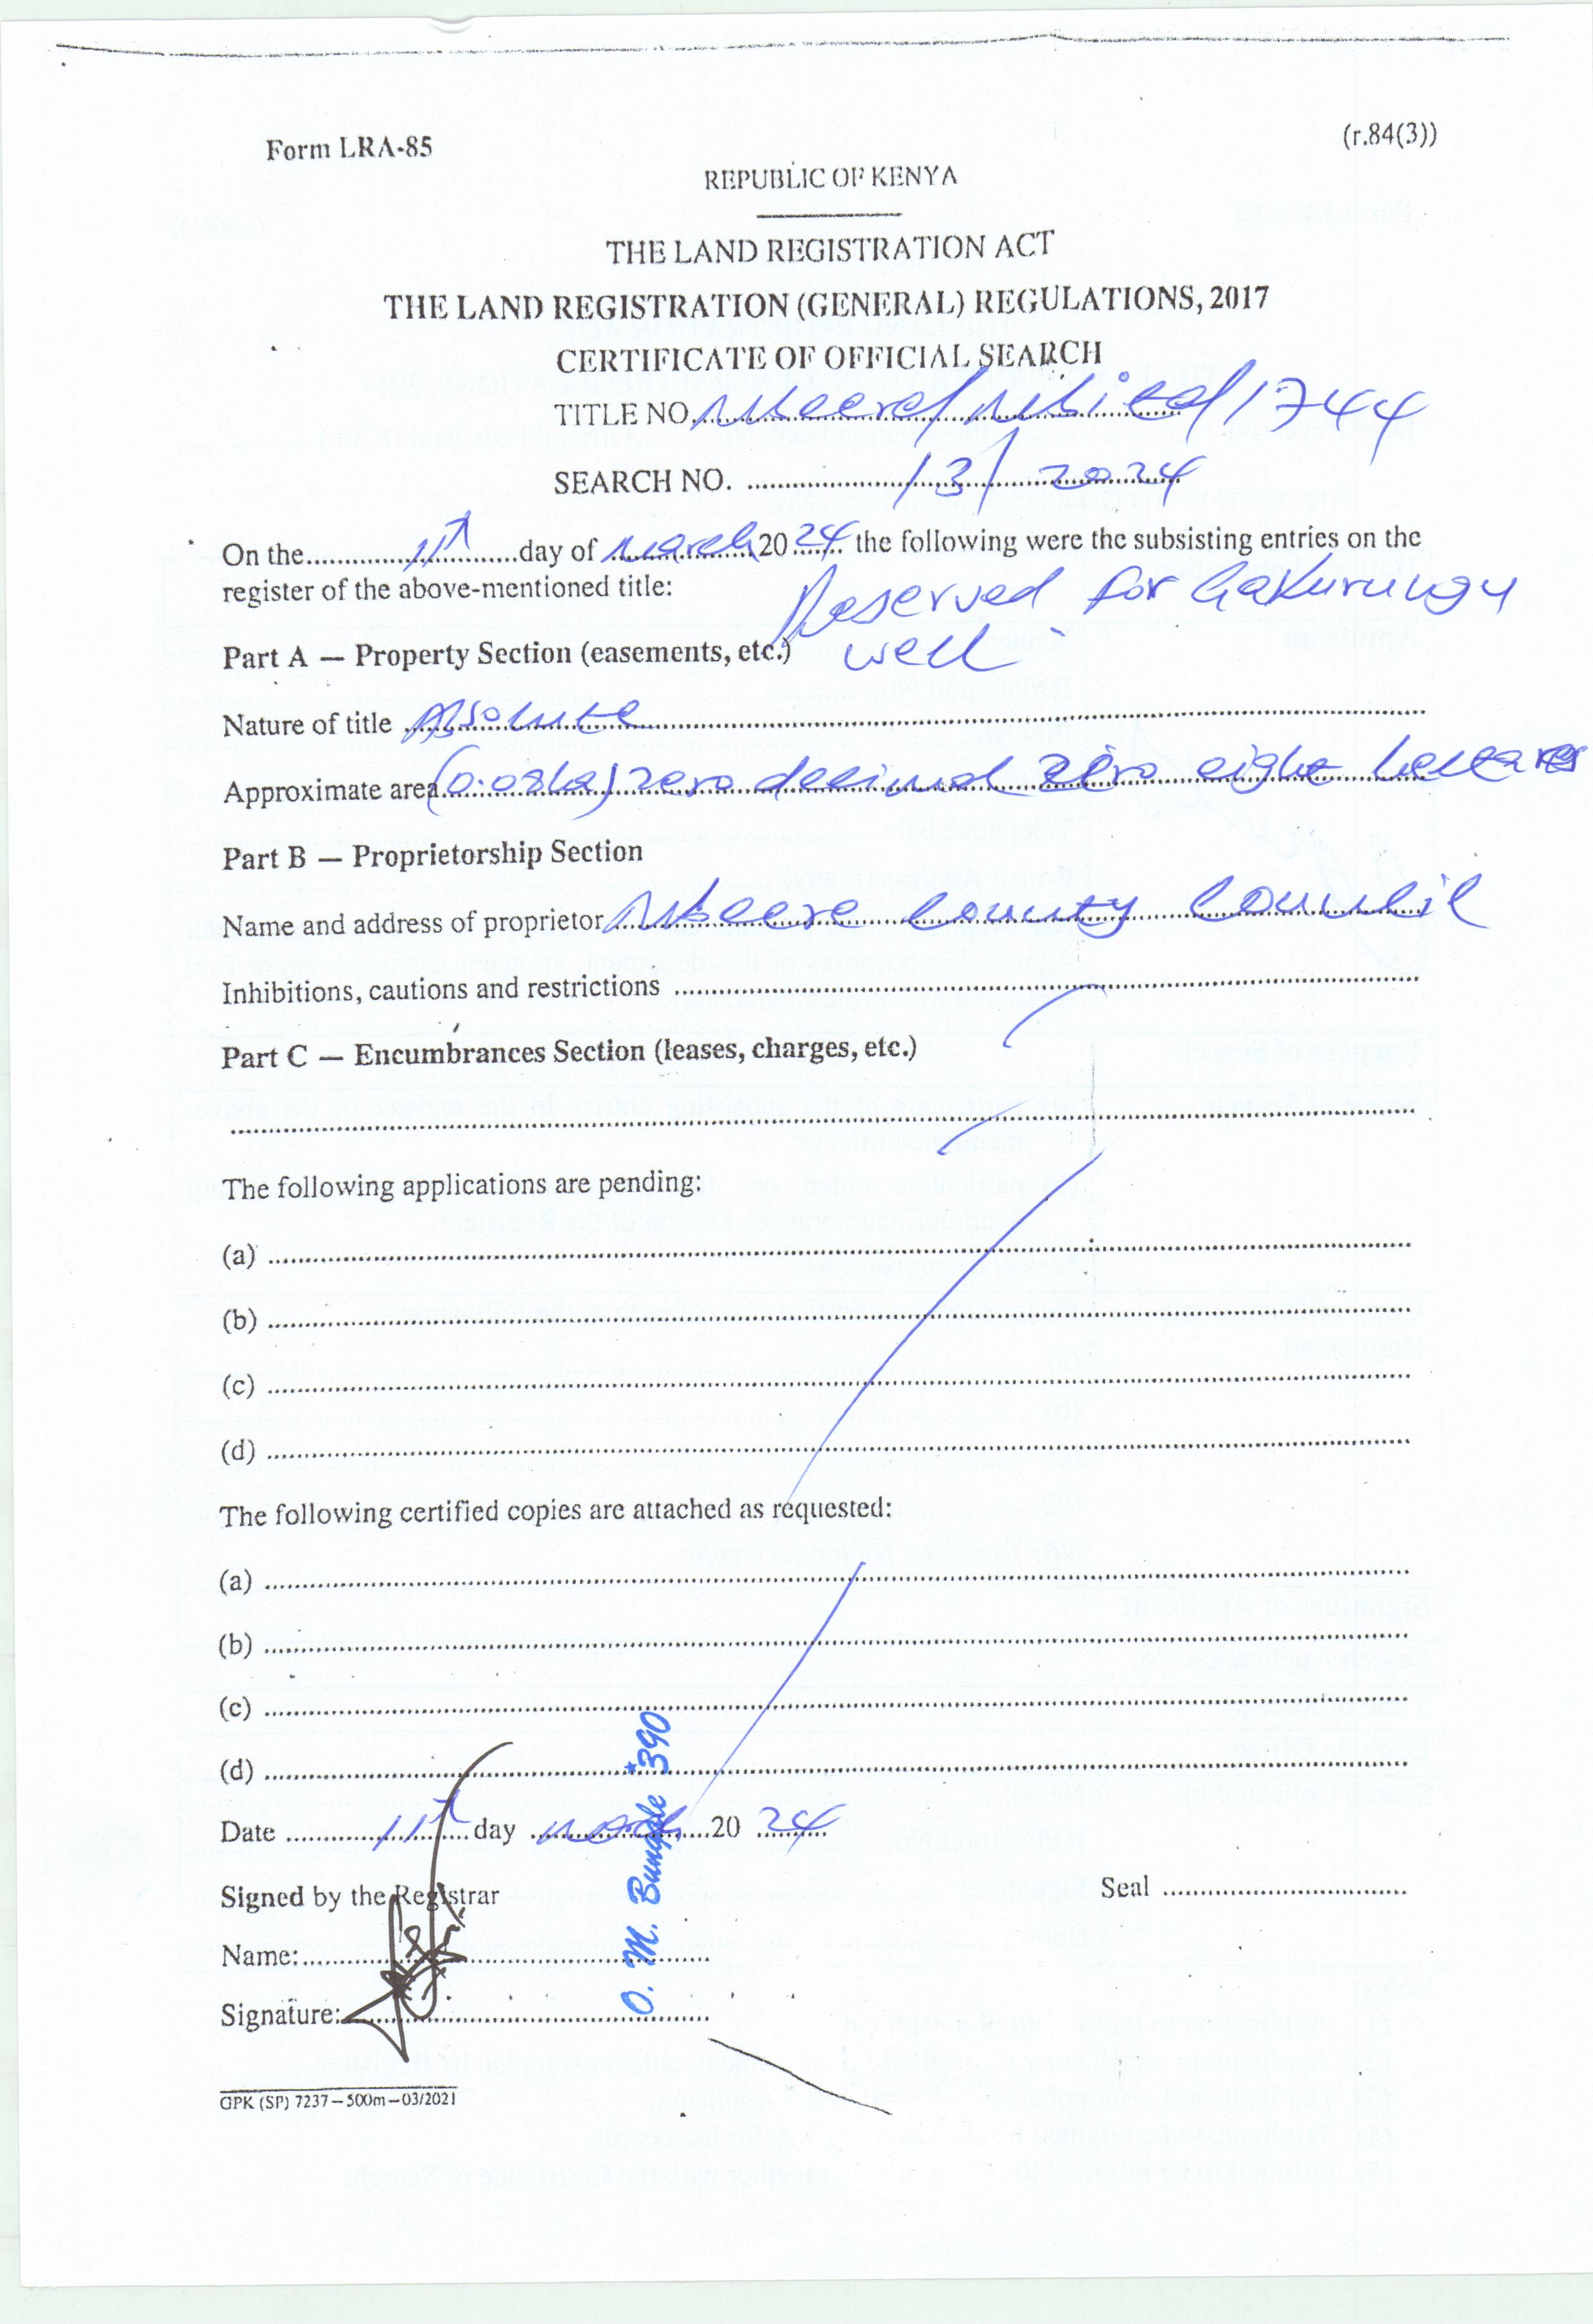 Form LRA-85
(r.84(3))
REPUBLIC OF KENYA
THE LAND REGISTRATION ACT
THE LAND REGISTRATION (GENERAL) REGULATIONS, 2017
CERTIFICATE OF OFFICIAL SEARCH
TITLE NO. Mbeere/Mbita/1744
SEARCH NO. 13/2024
On the 11th day of March 2024 the following were the subsisting entries on the
register of the above-mentioned title:
Reserved for Gakurungu
Part A — Property Section (easements, etc.) well
Nature of title Absolute
Approximate area (0.08ha) zero decimal zero eight hectares
Part B — Proprietorship Section
Name and address of proprietor Mbeere County Council
Inhibitions, cautions and restrictions
Part C — Encumbrances Section (leases, charges, etc.)
The following applications are pending:
(a)
(b)
(c)
(d)
The following certified copies are attached as requested:
(a)
(b)
(c)
(d)
Date 11th day March 2024
Signed by the Registrar
Seal
Name:
Signature:
O. M. Bungole *390
GPK (SP) 7237—500m—03/2021